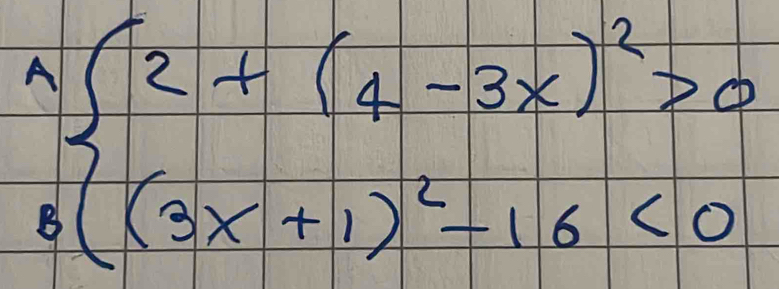 A { 2 + (4 - 3x)² > 0
B { (3x + 1)² - 16 < 0